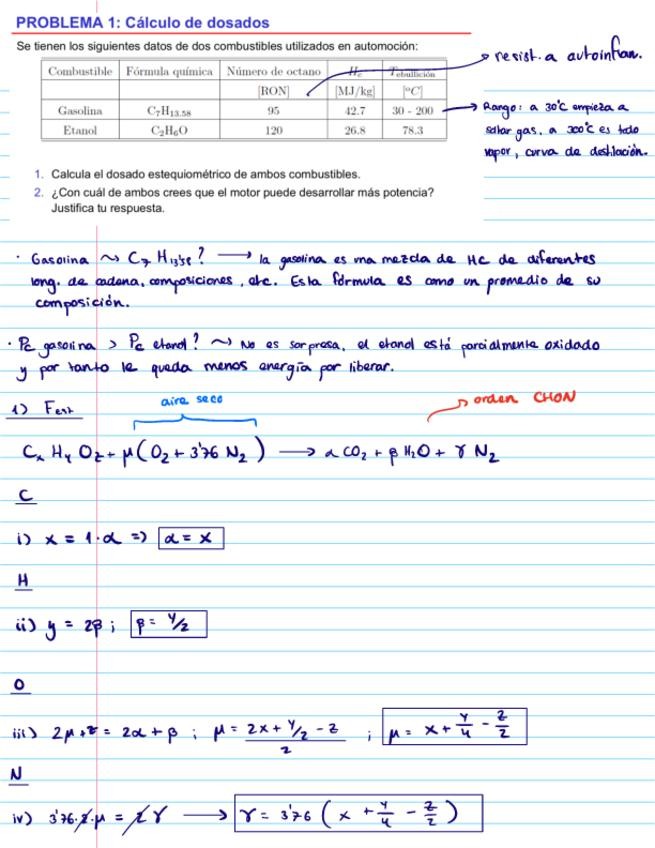 PROBLEMA 1: Cálculo de dosados
Se tienen los siguientes datos de dos combustibles utilizados en automoción:
resist. a autoinflam.
Combustible Fórmula química Número de octano Hc Tebullición
[RON] [MJ/kg] [°C]
Gasolina C7H13.58 95 42.7 30 - 200
Etanol C2H6O 120 26.8 78.3
Rango: a 30°C empieza a
soltar gas, a 200°C es todo
vapor, curva de destilación.
1. Calcula el dosado estequiométrico de ambos combustibles.
2. ¿Con cuál de ambos crees que el motor puede desarrollar más potencia?
Justifica tu respuesta.
· Gasolina ⤳ C7 H13'58? → la gasolina es una mezcla de HC de diferentes
long. de cadena, composiciones, etc. Esta fórmula es como un promedio de su
composición.
· Pc gasolina > Pc etanol? ⤳ No es sorpresa, el etanol está parcialmente oxidado
y por tanto le queda menos energía por liberar.
1) Fest
aire seco
orden CHON
Cx Hy Oz + μ(O2 + 3'76 N2) → α CO2 + β H2O + γ N2
C
i) x = 1·α => α = x
H
ii) y = 2β ; β = y/2
O
iii) 2μ + z = 2α + β ; μ = (2x + y/2 - z)/2 ; μ = x + y/4 - z/2
N
iv) 3'76·2·μ = 2γ → γ = 3'76 (x + y/4 - z/2)